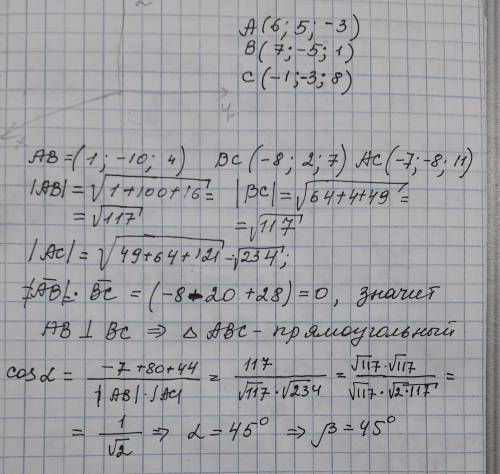 z
y
x
A(6; 5; -3)
B(7; -5; 1)
C(-1; -3; 8)
AB=(1; -10; 4) BC(-8; 2; 7) AC(-7; -8; 11)
|AB|=√1+100+16= |BC|=√64+4+49=
=√117 =√117
|AC|=√49+64+121=√234;
|AB|·BC=(-8-20+28)=0, значит
AB⊥BC ⇒ △ABC-прямоугольный
cosα = (-7+80+44)/(|AB|·|AC|) = 117/(√117·√234) = (√117·√117)/(√117·√2·117) =
= 1/√2 ⇒ α=45° ⇒ β=45°